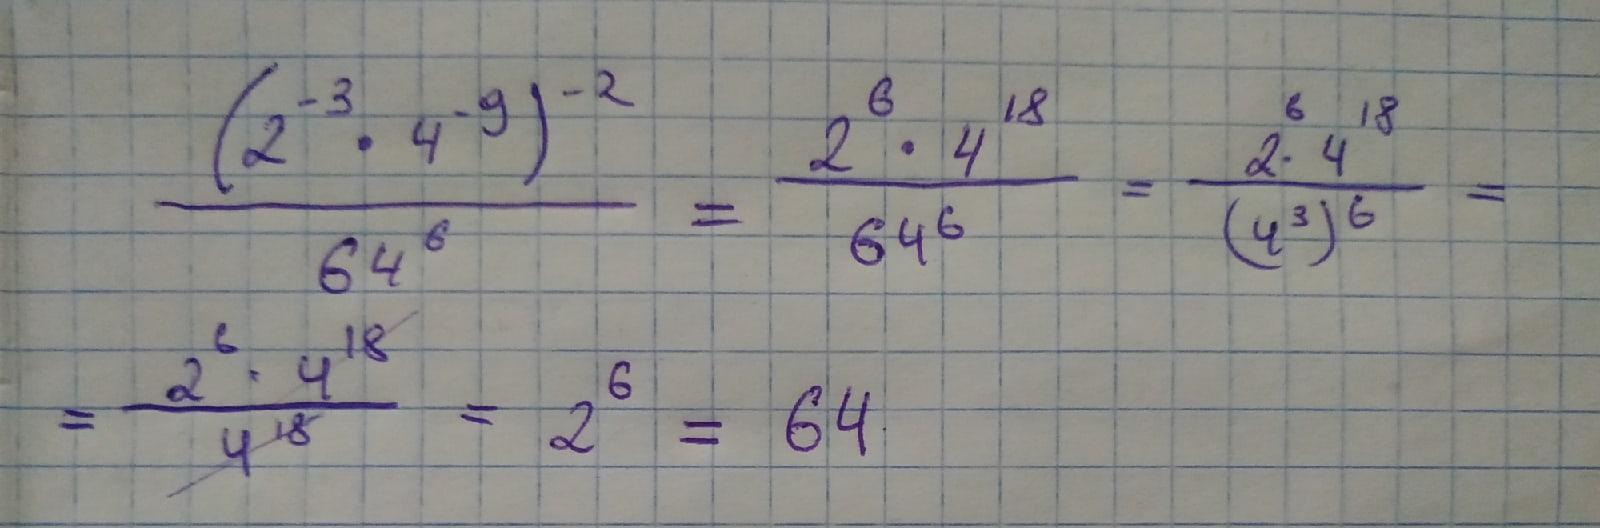 (2^-3 · 4^-9)^-2 / 64^6 = 2^6 · 4^18 / 64^6 = 2^6 · 4^18 / (4^3)^6 =
= 2^6 · 4^18 / 4^18 = 2^6 = 64